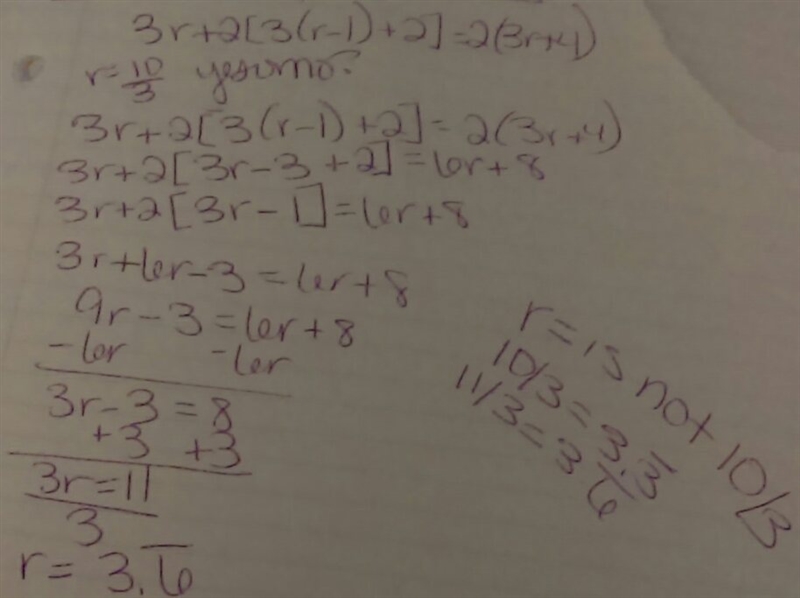 3r+2[3(r-1)+2]=2(3r+4)
r=10/3 yes or no?
3r+2[3(r-1)+2]=2(3r+4)
3r+2[3r-3+2]=6r+8
3r+2[3r-1]=6r+8
3r+6r-3=6r+8
9r-3=6r+8
-6r -6r
3r-3=8
+3 +3
3r=11
3
r=3.6̅
r=is not 10/3
10/3=3.3̅
11/3=3.6̅